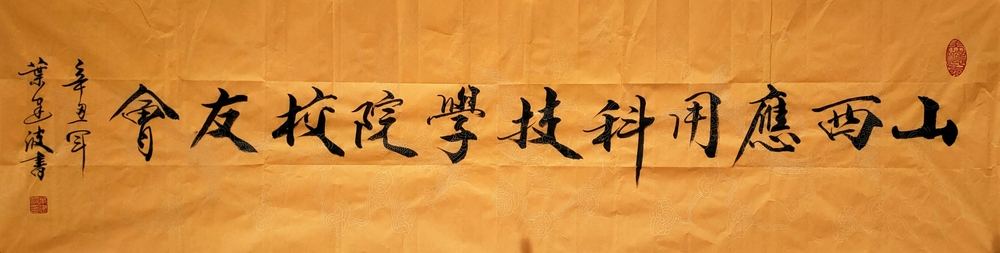 山西應用科技學院校友會
辛丑年
葉建波書